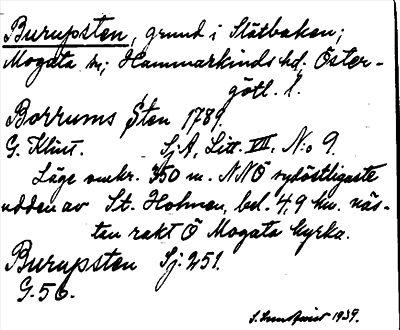 Burupsten, grund i Slätbaken;
Mogata sn; Hammarkinds hd. Öster-
götl. l.
Borrums Sten 1789.
G. Klint. SjA, Litt. VII, N:o 9.
Läge omkr. 350 m. NNÖ sydöstligaste
udden av St. Holmen, bel. 4,9 km. näs-
tan rakt Ö Mogata kyrka.
Burupsten Sj: 251.
G. 56.
1939.